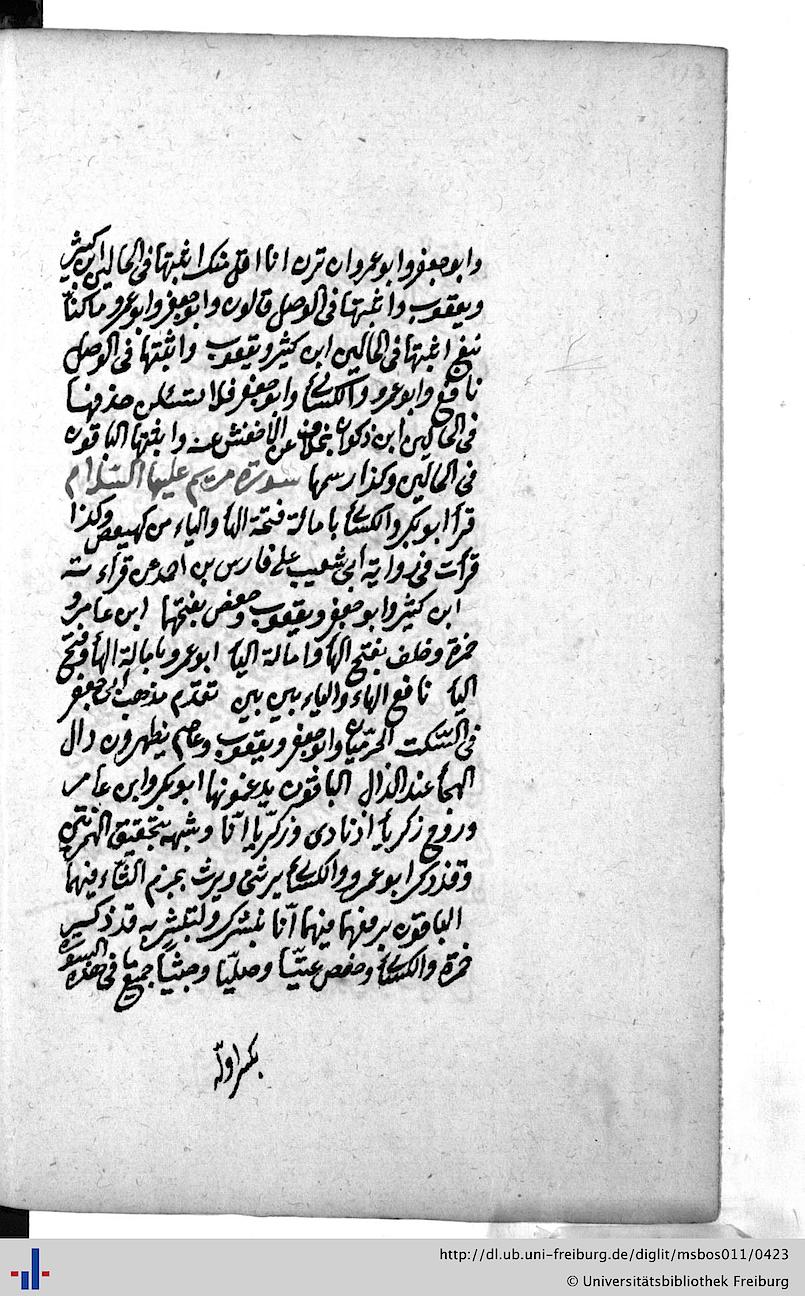 وابو جعفر وابو عمرو ان ترن انا اقل منك اثبتها فى الحالين ابن كثير
ويعقوب واثبتها فى الوصل قالون وابو جعفر وابو عمرو ما كنا
نبغ اثبتها فى الحالين ابن كثير ويعقوب واثبتها فى الوصل
نافع وابو عمرو والكسائى وابو جعفر فلا تسئلن حذفها
فى الحالين ابن ذكوان بخلاف عن الاخفش عنه واثبتها الباقون
فى الحالين وكذا رسمها سورة مريم عليها السلام
قرأ ابو بكر والكسائى بامالة فتحة الهاء والياء من كهيعص وكذا
قرأت فى رواية ابى شعيب على فارس بن احمد عن قراءته
ابن كثير وابو جعفر ويعقوب وحفص بفتحها ابن عامر و
حمزة وخلف بفتح الهاء وامالة الياء ابو عمرو بامالة الهاء وفتح
الياء نافع الهاء والياء بين بين تقدم مذهب ابى جعفر
فى السكت الحرميان وابو جعفر ويعقوب وعاصم يظهرون دال
الهجاء عند الذال الباقون يدغمونها ابو بكر وابن عامر
وروح زكريا اذ نادى وزكريا انا وشبهه بتحقيق الهمزتين
وقد ذكر ابو عمرو والكسائى يرثنى ويرث بجزم الثاء فيهما
الباقون برفعهما فيهما انا نبشرك ولتبشر به قد ذكر
حمزة والكسائى وحفص عتيا وصليا وجثيا جميع ما فى هذه السورة
بكسر اوله
http://dl.ub.uni-freiburg.de/diglit/msbos011/0423
© Universitätsbibliothek Freiburg